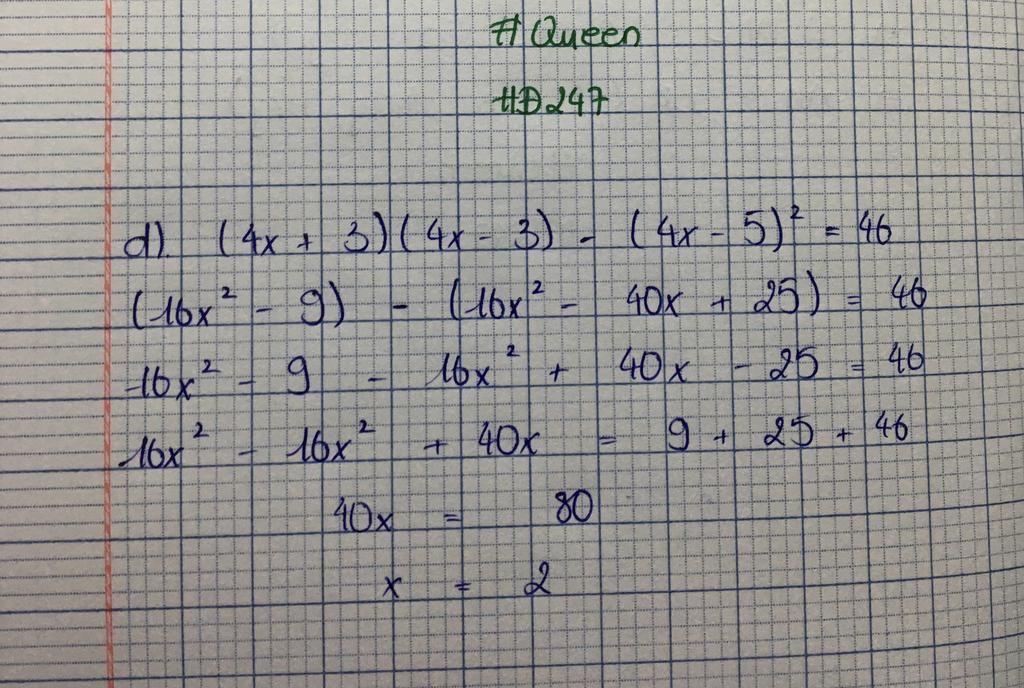 # Queen
#D247
d). (4x + 3)(4x - 3) - (4x - 5)² = 46
(16x² - 9) - (16x² - 40x + 25) = 46
16x² - 9 - 16x² + 40x - 25 = 46
16x² - 16x² + 40x = 9 + 25 + 46
40x = 80
x = 2